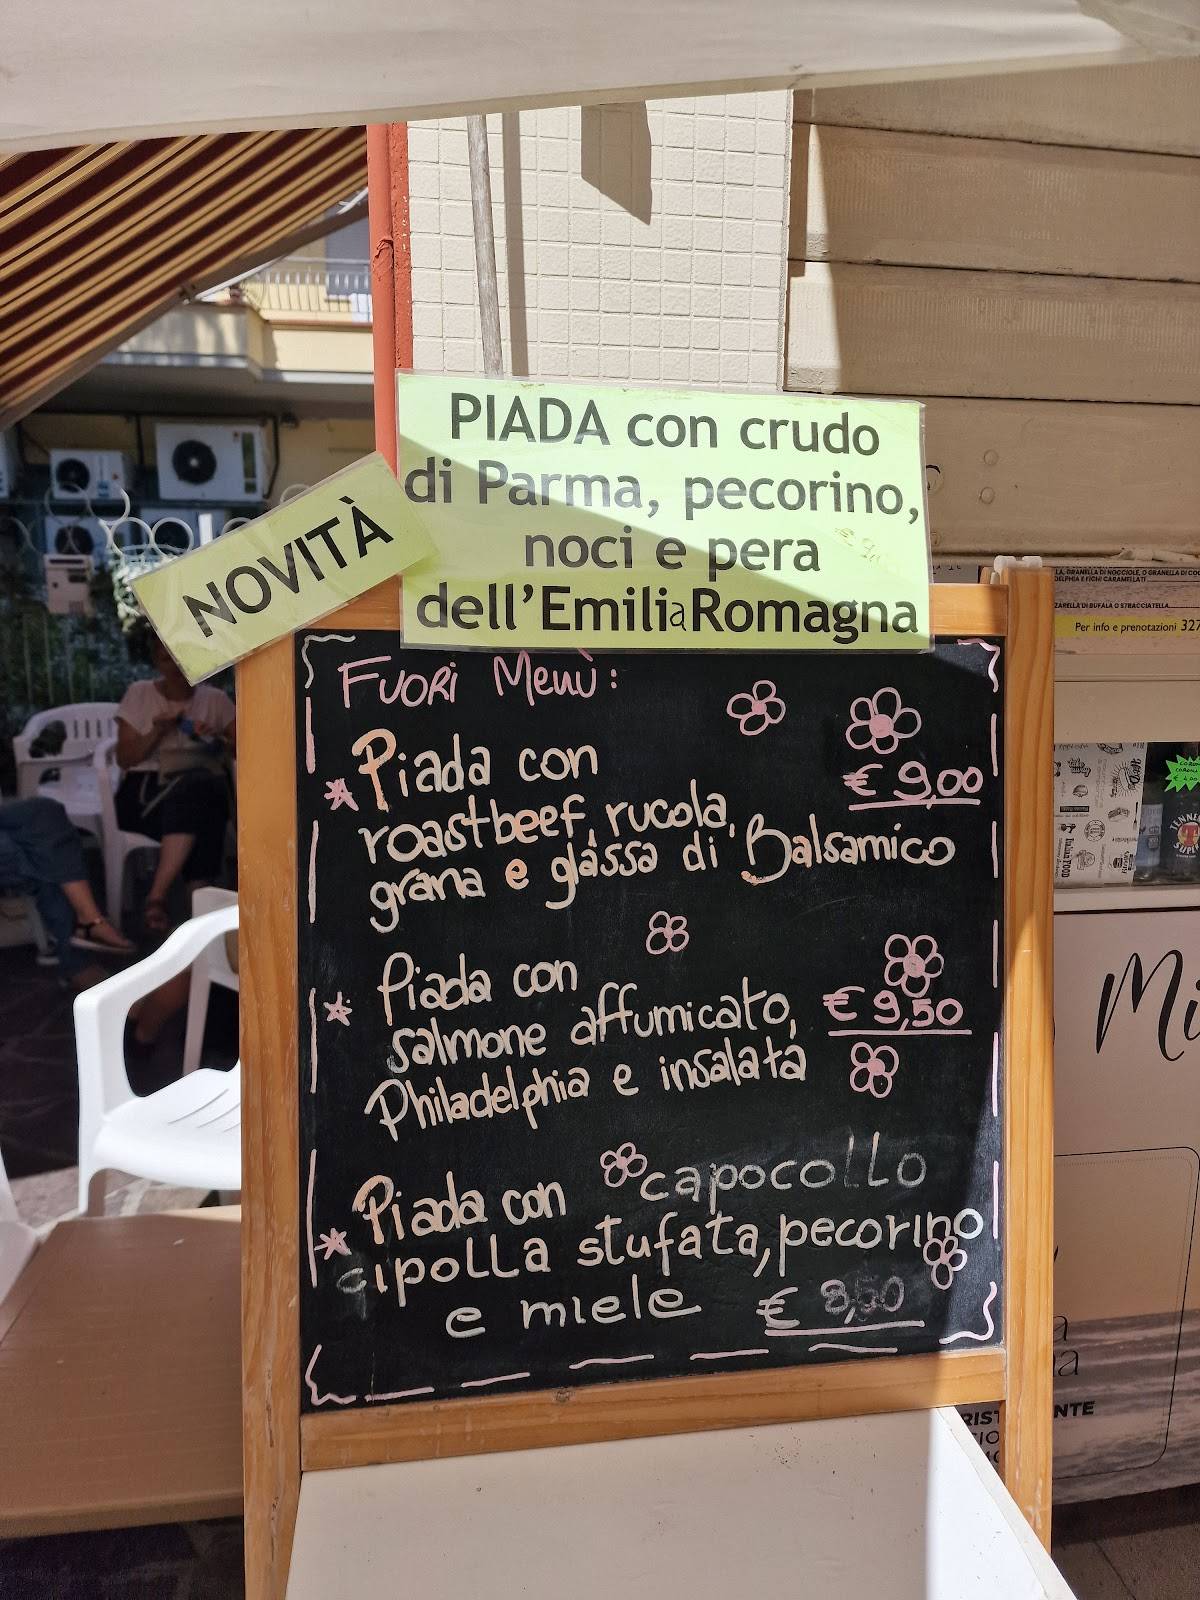 PIADA con crudo
di Parma, pecorino,
noci e pera
dell'Emilia Romagna
NOVITÀ
FUORI Menù:
* Piada con
€ 9,00
roastbeef, rucola,
grana e glassa di Balsamico
* Piada con
salmone affumicato,
€ 9,50
Philadelphia e insalata
* Piada con capocollo
cipolla stufata, pecorino
e miele € 8,50
LA, GRANELLA DI NOCCIOLE, O GRANELLA DI COC
DELPHIA E FICHI CARAMELLATI
ZARELLA DI BUFALA O STRACCIATELLA
Per info e prenotazioni 327
TENNE
SUPE
Italian FOOD
Mi